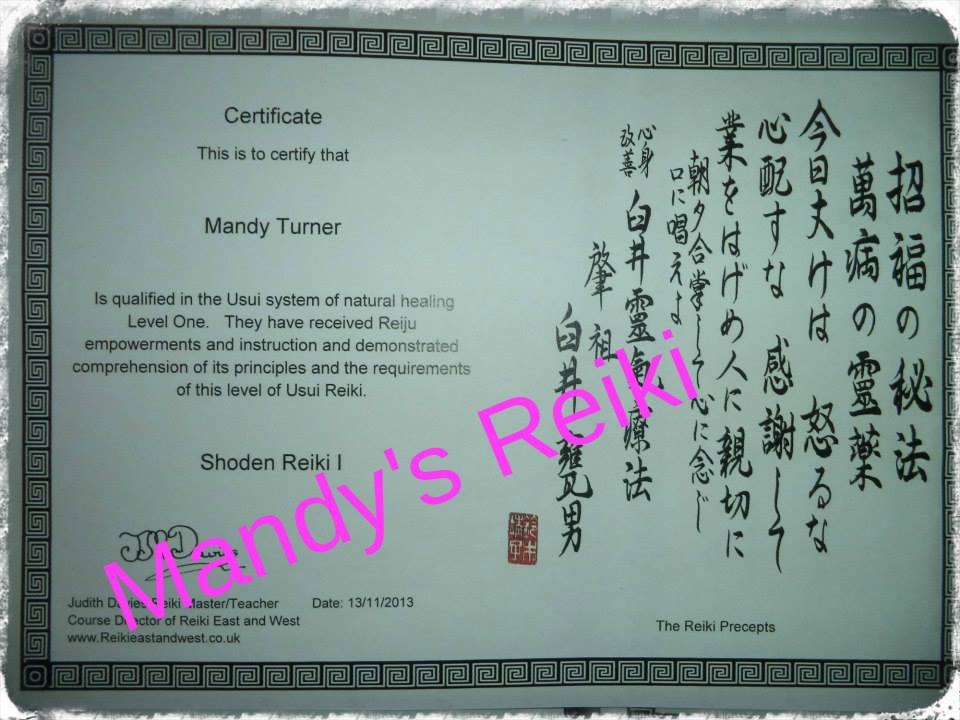 Certificate
This is to certify that
Mandy Turner
Is qualified in the Usui system of natural healing
Level One. They have received Reiju
empowerments and instruction and demonstrated
comprehension of its principles and the requirements
of this level of Usui Reiki.
Shoden Reiki I
Judith Davies Reiki Master/Teacher Date: 13/11/2013
Course Director of Reiki East and West
www.Reikieastandwest.co.uk
招福の秘法
萬病の靈藥
今日丈けは 怒るな
心配すな 感謝して
業をはげめ人に親切に
朝夕合掌して心に念じ
口に唱えよ
心身
改善
臼井靈氣療法
肇祖
臼井甕男
The Reiki Precepts
Mandy's Reiki